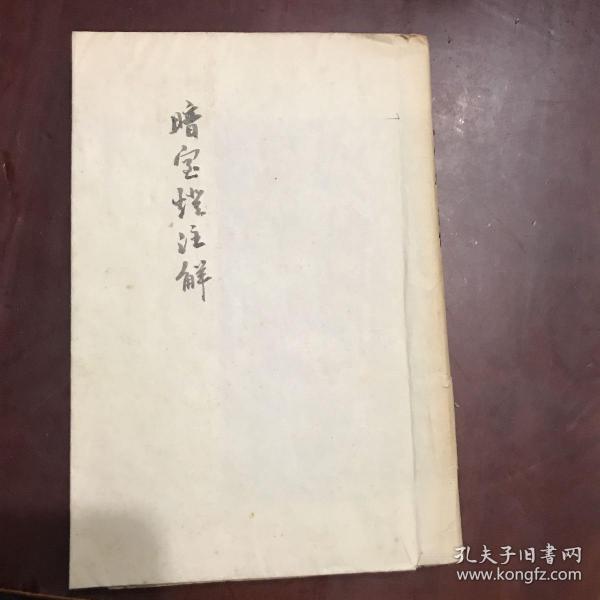 暗室燈注解
孔夫子旧書网
www.kongfz.com